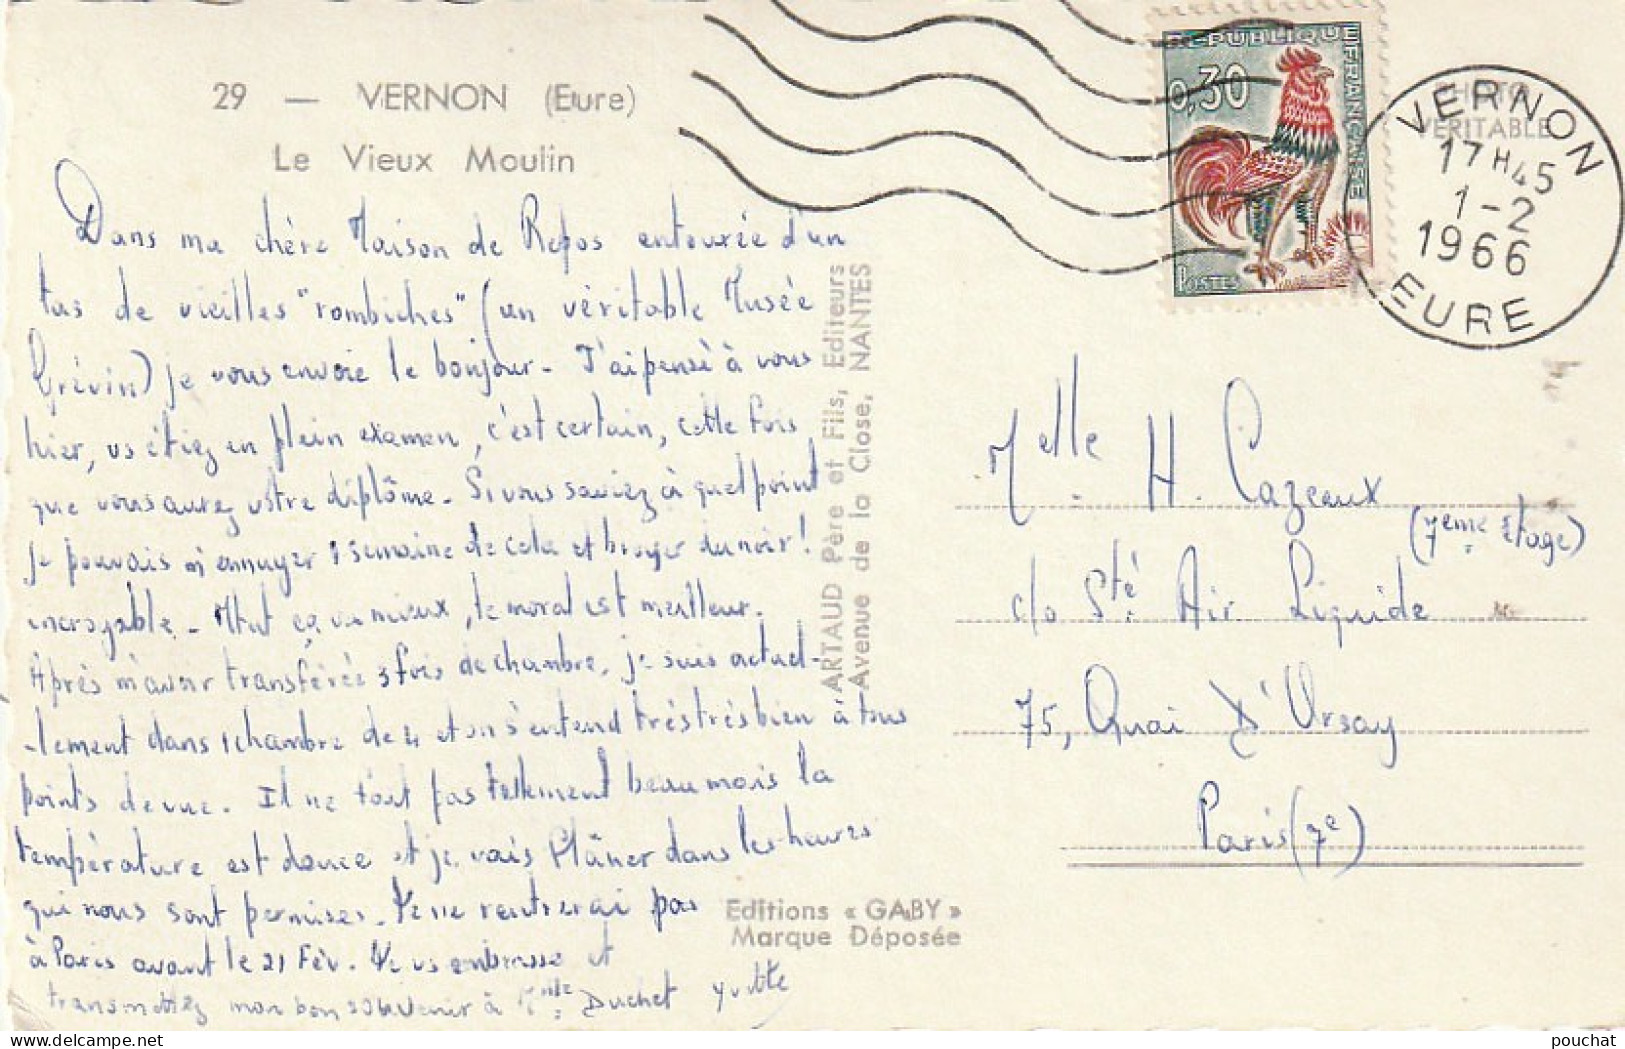 29 — VERNON (Eure)
Le Vieux Moulin
Dans ma chère Maison de Repos entourée d'un
tas de vieilles "rombiches" (un véritable Musée
Grévin) je vous envoie le bonjour - J'ai pensé à vous
hier, vs étiez en plein examen, c'est certain, cette fois
que vous aurez votre diplôme - Si vous saviez à quel point
je pouvais m'ennuyer 1 semaine de cela et broyer du noir!
incroyable - ça va mieux, le moral est meilleur.
Après m'avoir transférée 3 fois de chambre, je suis actuel-
-lement dans 1 chambre de 4 et on s'entend très très bien à tous
points de vue. Il ne fait pas tellement beau mais la
température est douce et je vais flâner dans les heures
qui nous sont permises. Je ne rentrerai pas
à Paris avant le 21 Fév. Je vs embrasse et
transmettez mon bon souvenir à Melle Duchet Yvette
ARTAUD Père et Fils, Editeurs
Avenue de la Close, NANTES
Editions « GABY »
Marque Déposée
REPUBLIQUE FRANCAISE
0,30
POSTES
PHOTO
VERITABLE
VERNON
17 H 45
1-2
1966
EURE
Melle H. Cazeaux
(7eme Etage)
c/o Sté Air Liquide
75, Quai D'Orsay
Paris (7e)
pouchat